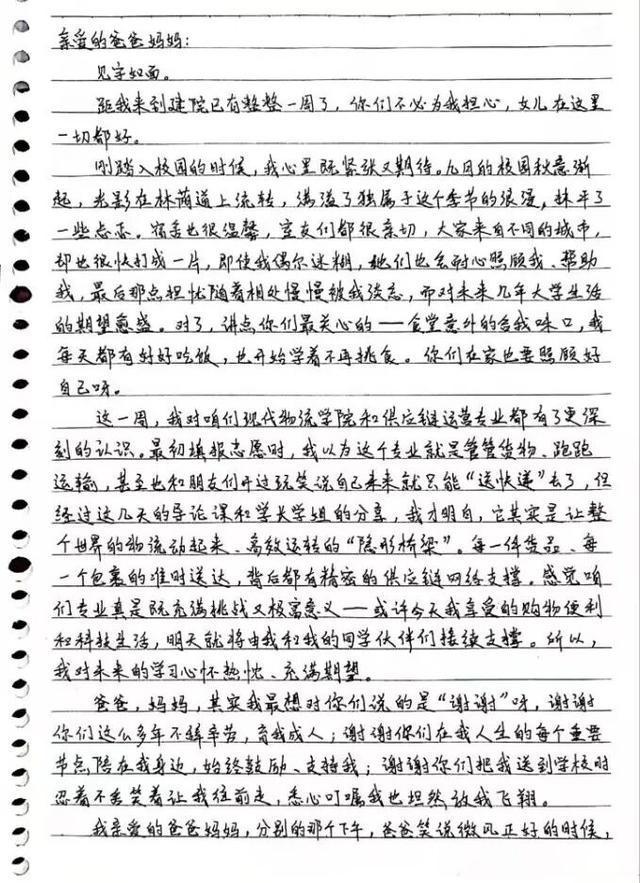 亲爱的爸爸妈妈：
见字如面。
距我来到建院已有整整一周了，你们不必为我担心，女儿在这里
一切都好。
刚踏入校园的时候，我心里既紧张又期待。九月的校园秋意渐
起，光影在林荫道上流转，满溢了独属于这个季节的浪漫，抹平了
一些忐忑。宿舍也很温馨，室友们都很亲切，大家来自不同的城市，
却也很快打成一片，即使我偶尔迷糊，她们也会耐心照顾我、帮助
我，最后那点担忧随着相处慢慢被我淡忘，而对未来几年大学生活
的期望愈盛。对了，讲点你们最关心的——食堂意外的合我味口，我
每天都有好好吃饭，也开始学着不再挑食。你们在家也要照顾好
自己呀。
这一周，我对咱们现代物流学院和供应链运营专业都有了更深
刻的认识。最初填报志愿时，我以为这个专业就是管管货物、跑跑
运输，甚至也和朋友们开过玩笑说自己未来就只能“送快递”去了，但
经过这几天的导论课和学长学姐的分享，我才明白，它其实是让整
个世界的物流动起来、高效运转的“隐形桥梁”。每一件货品、每
一个包裹的准时送达，背后都有精密的供应链网络支撑。感觉咱
们专业真是既充满挑战又极富意义——或许今天我享受的购物便利
和科技生活，明天就将由我和我的同学伙伴们接续支撑。所以，
我对未来的学习心怀热忱、充满期望。
爸爸，妈妈，其实我最想对你们说的是“谢谢”呀，谢谢
你们这么多年不辞辛苦，育我成人；谢谢你们在我人生的每个重要
节点陪在我身边，始终鼓励、支持我；谢谢你们把我送到学校时
忍着不舍笑着让我往前走，悉心叮嘱我也坦然放我飞翔。
我亲爱的爸爸妈妈，分别的那个下午，爸爸笑说微风正好的时候，